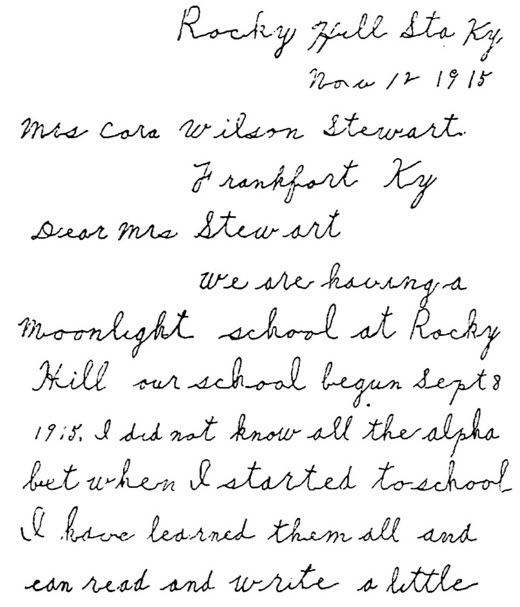 Rocky Hill Sta Ky,
Nov 12 1915
Mrs Cora Wilson Stewart.
Frankfort Ky
Dear Mrs Stewart
we are having a
Moonlight school at Rocky
Hill our school begun Sept 8
1915. I did not know all the alpha
bet when I started to school
I have learned them all and
can read and write a little